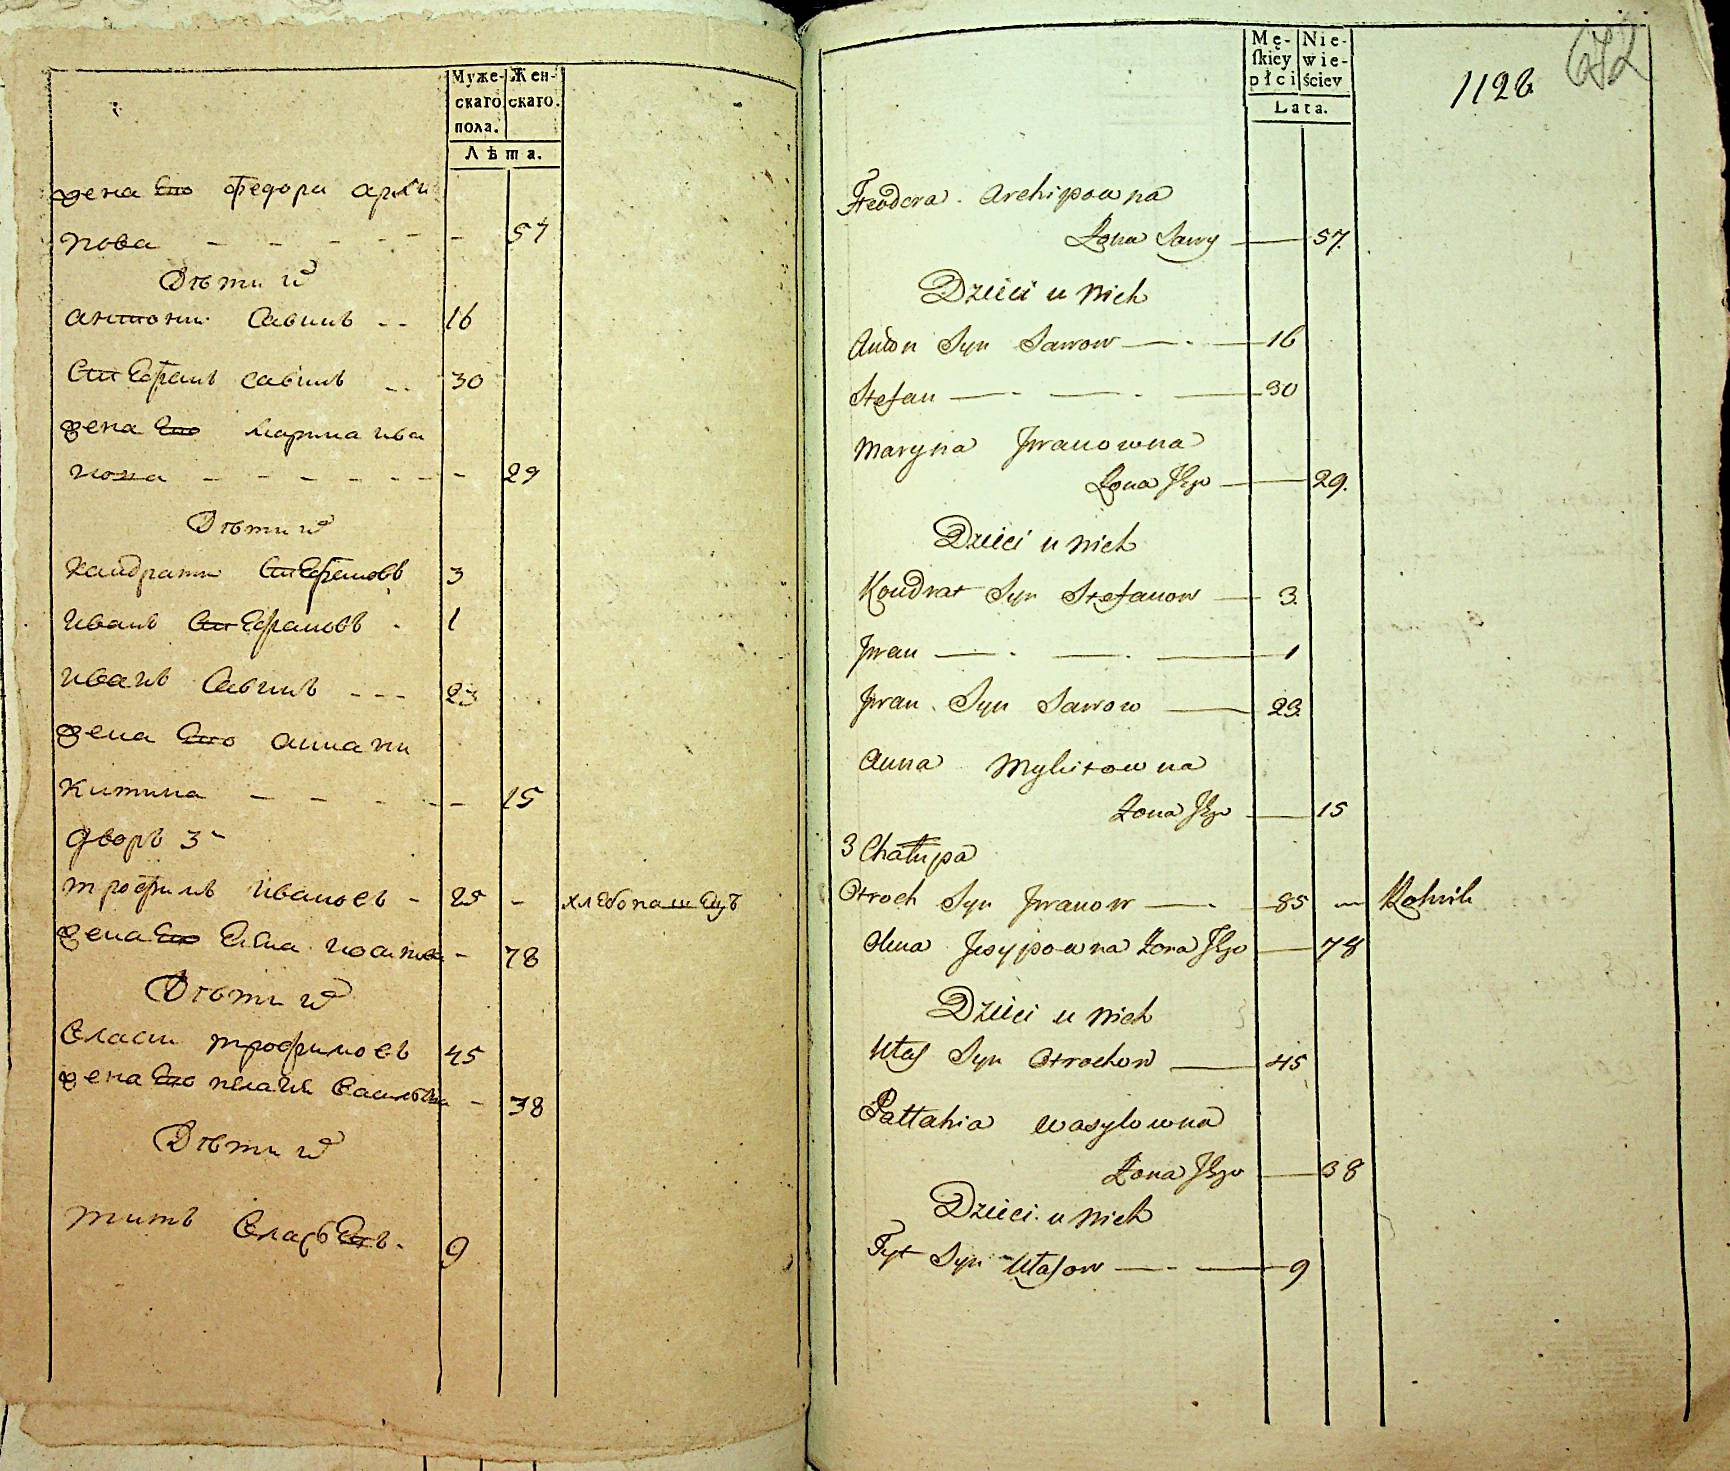 Муже-
скаго
пола.
Жен-
скаго.
Лѣта.
жена Его Федора архи
пова - - - - - 57
Дѣти их
антони Савинъ - - 16
Стефанъ савинъ - - 30
жена Его Марина ива
нова - - - - - - 29
Дѣти их
Кандрати Стефановъ 3
иванъ Стефановъ - 1
иванъ Савинъ - - - 23
жена Его анна ни
китина - - - - - 15
дворъ 3
трофимъ ивановъ - 85 - хлебопашецъ
жена Его Елена - 78
Дѣти их
Власи трофимовъ 45
жена Его пелагия - 38
Дѣти их
титъ 9
Mę-
ſkiey
płci
Nie-
wie-
ściey
Lata.
1128
672
Feodora Archipowna
Żona Sawy — 57.
Dzieci u Nich
Anton Syn Sawow — 16
Stefan — 30
Maryna Jwanowna
Żona Jego — 29.
Dzieci u Nich
Kondrat Syn Stefanow — 3.
Jwan — 1
Jwan Syn Sawow — 23.
Anna Mykitowna
Żona Jego — 15
3 Chałupa
Otroch Syn Jwanow — 85 — Rolnik
Olena Jesypowna Żona Jego — 78
Dzieci u Nich
Ułas Syn Otrochow — 45
Pałłahia Wasylowna
Żona Jego — 38
Dzieci u Nich
Tyt Syn Ułasow — 9